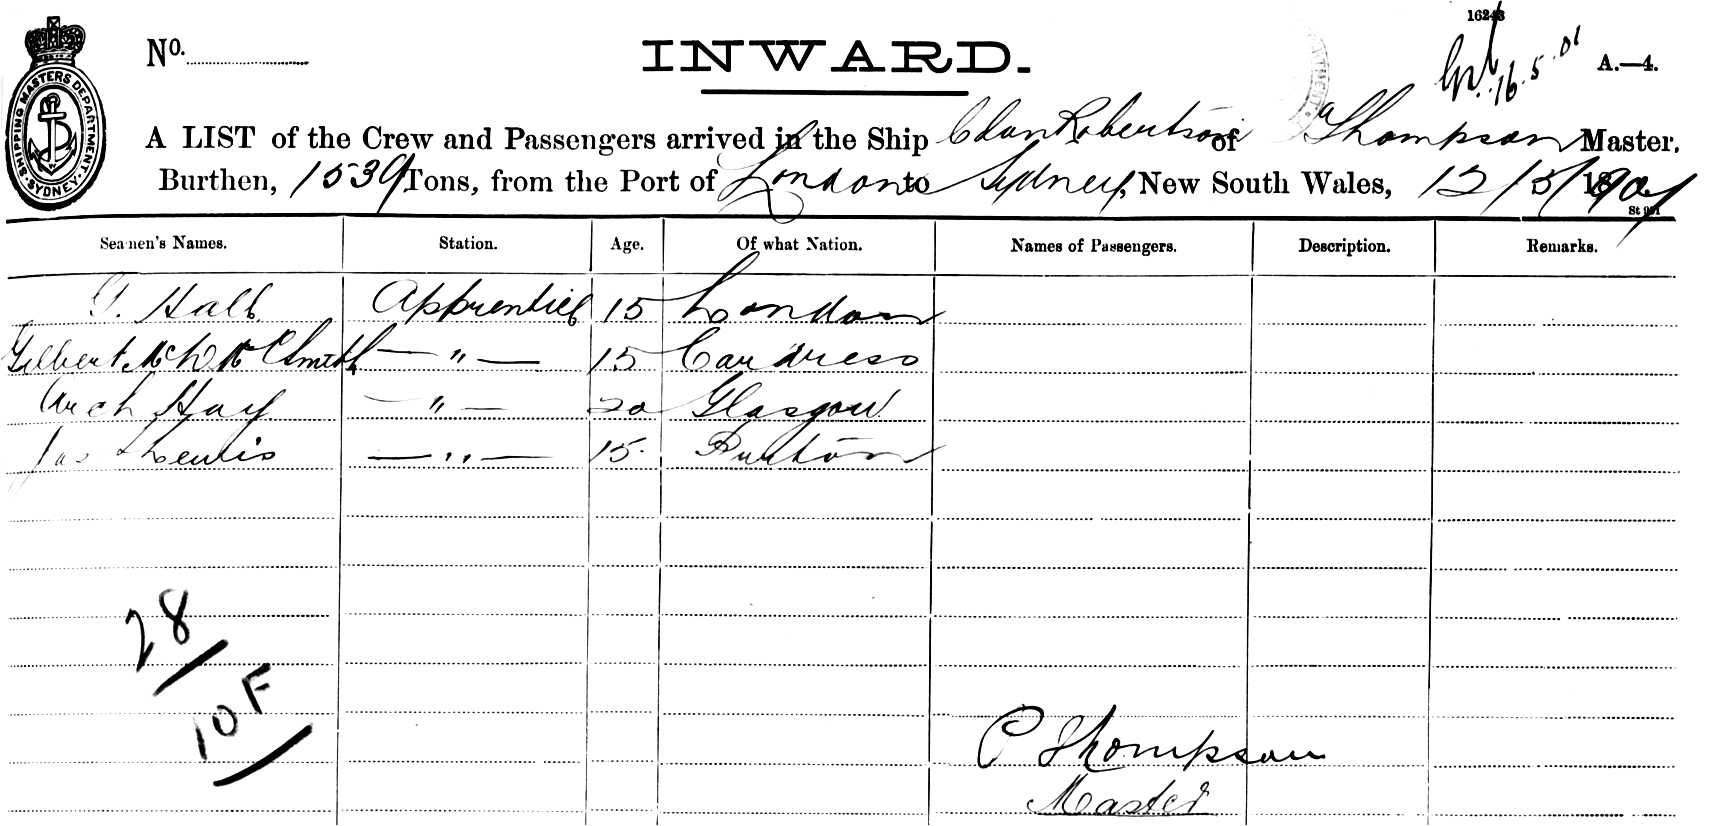 16248
No. INWARD. 16.5.01 A.—4.
A LIST of the Crew and Passengers arrived in the Ship Clan Robertson of Thompson Master.
Burthen, 1539 Tons, from the Port of London to Sydney, New South Wales, 12/5/1901
SHIPPING MASTERS DEPARTMENT. SYDNEY.
Seamen's Names. Station. Age. Of what Nation. Names of Passengers. Description. Remarks.
G. Hall Apprentice 15 London
Gilbert Smith — " — 15
Arch Hay — " — 20 Glasgow
Jas Lewis — " — 15
28
10 F
P Thompson
Master